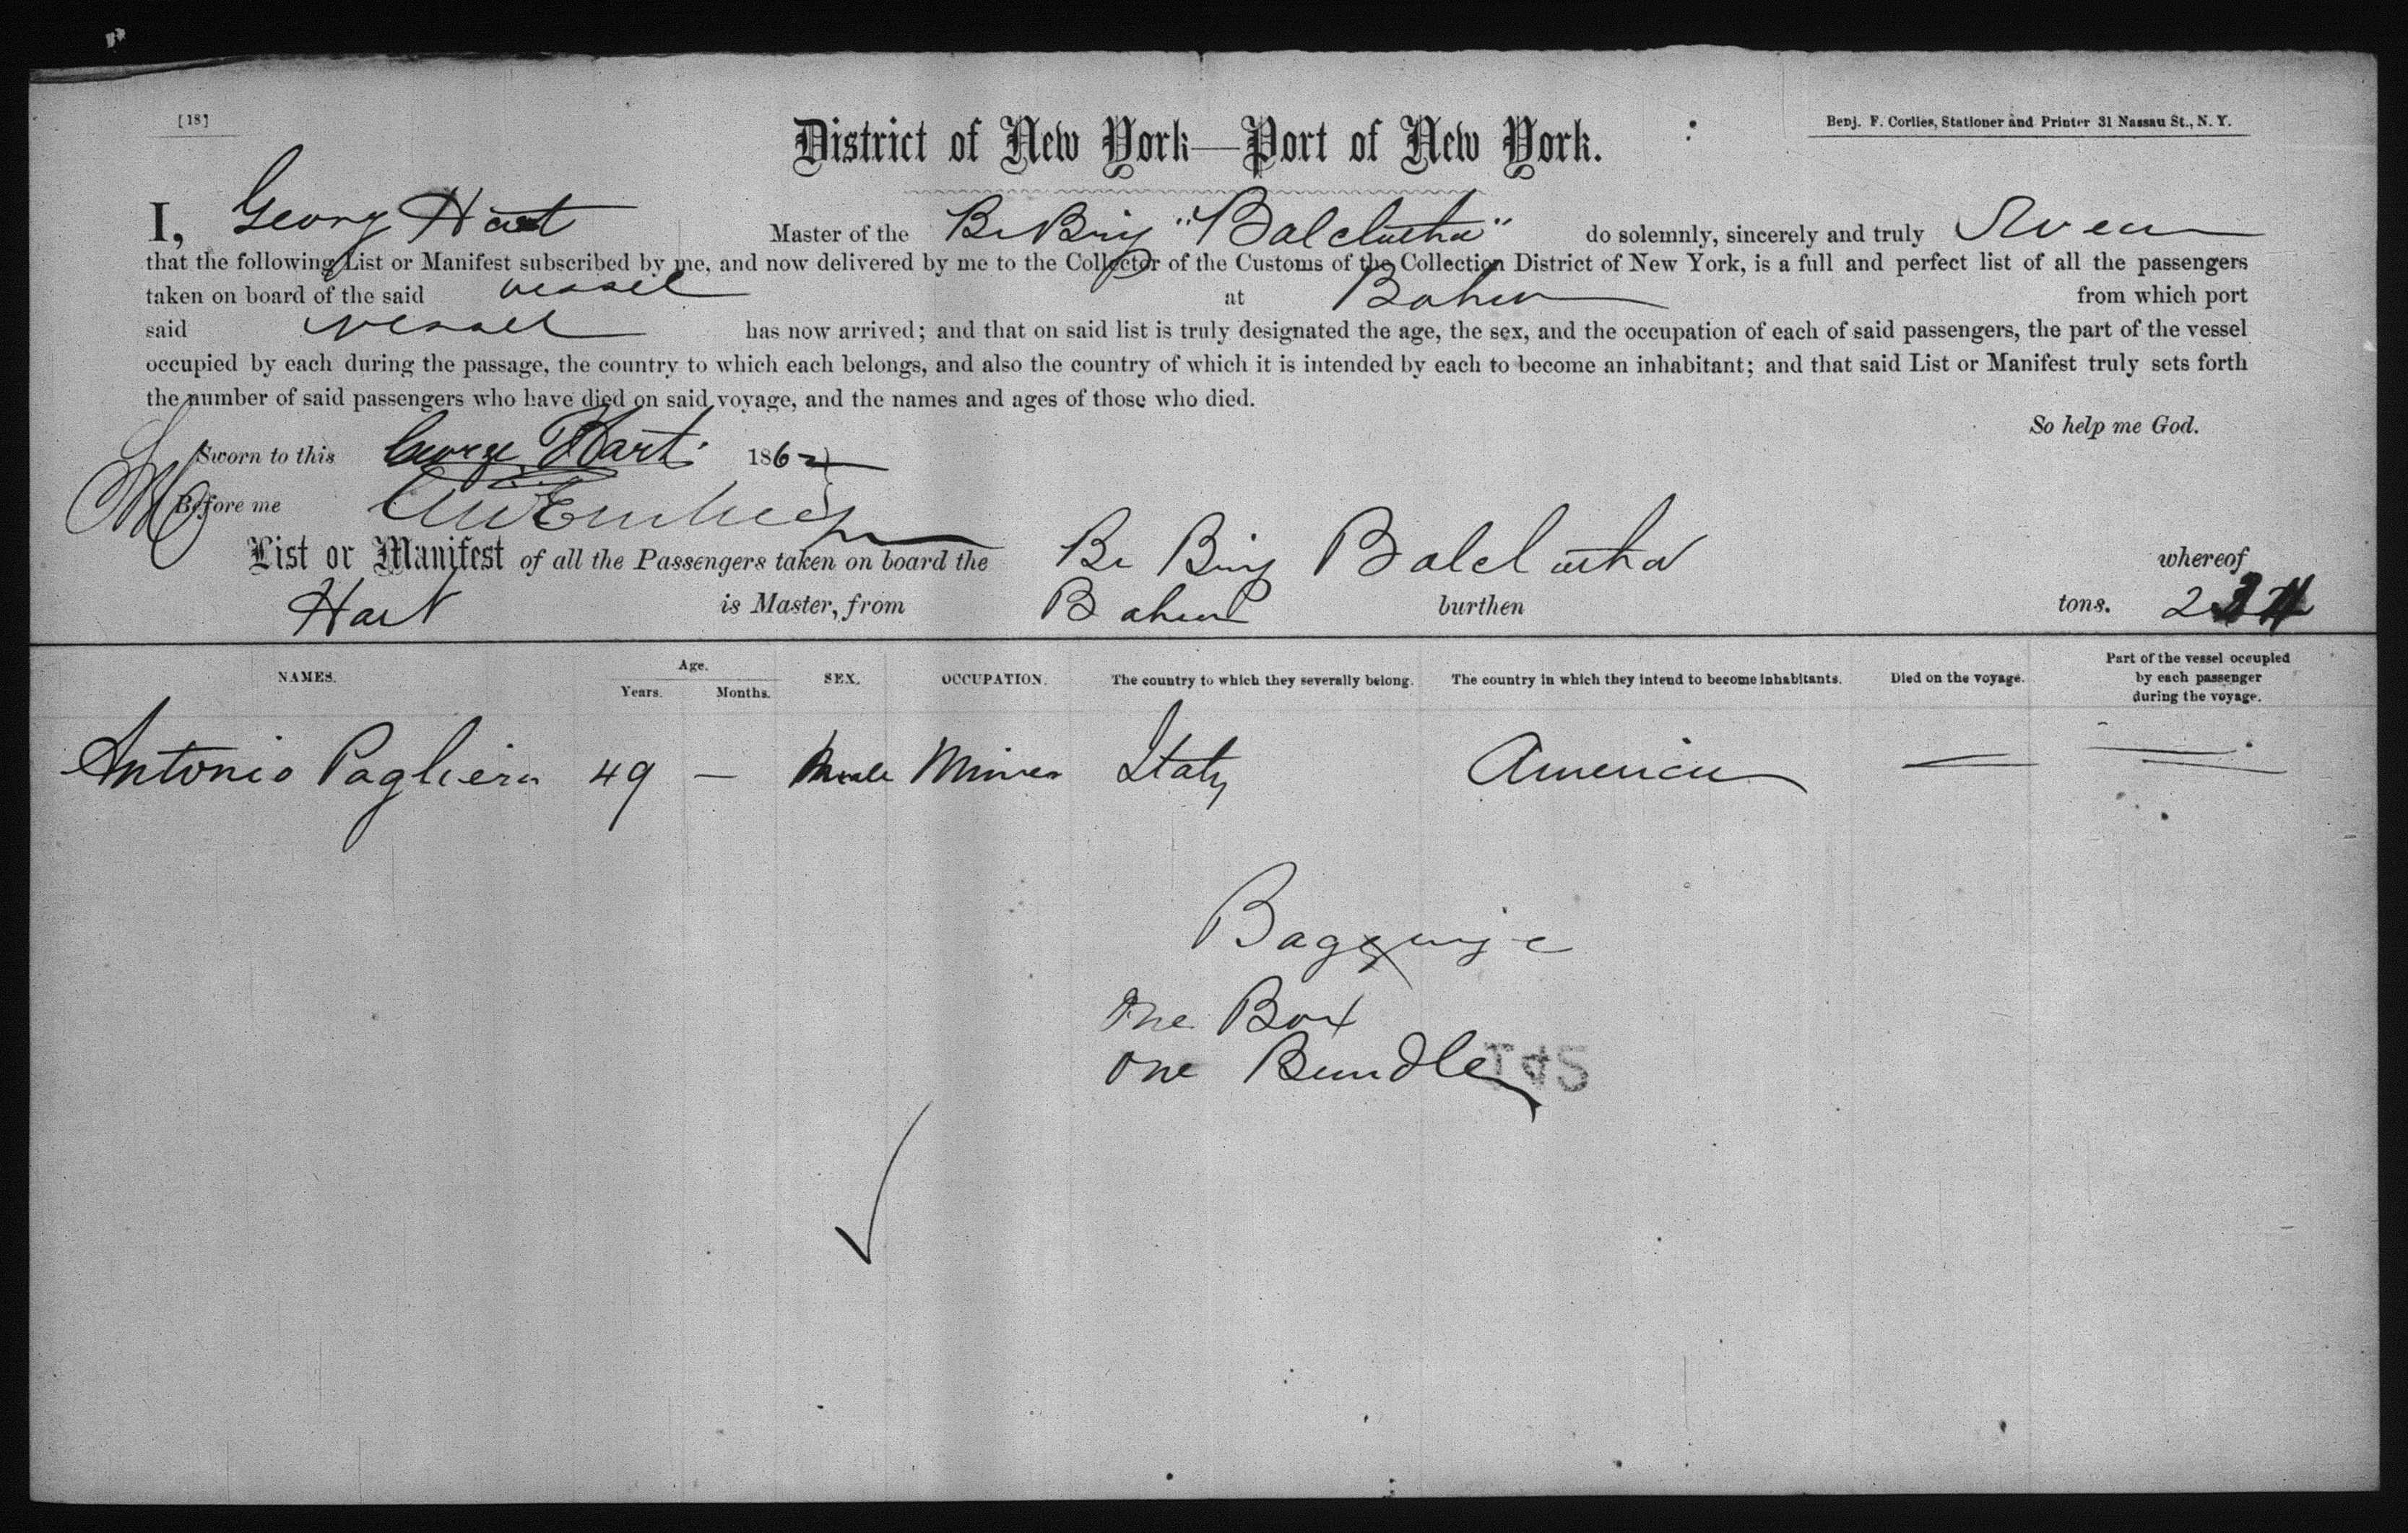 [18]
District of New York—Port of New York.
Benj. F. Corlies, Stationer and Printer 31 Nassau St., N. Y.
I, George Hart Master of the Br Brig "Balclutha" do solemnly, sincerely and truly Swear
that the following List or Manifest subscribed by me, and now delivered by me to the Collector of the Customs of the Collection District of New York, is a full and perfect list of all the passengers
taken on board of the said vessel at Bahia from which port
said vessel has now arrived; and that on said list is truly designated the age, the sex, and the occupation of each of said passengers, the part of the vessel
occupied by each during the passage, the country to which each belongs, and also the country of which it is intended by each to become an inhabitant; and that said List or Manifest truly sets forth
the number of said passengers who have died on said voyage, and the names and ages of those who died.
So help me God.
Sworn to this George Hart 186
Before me
List or Manifest of all the Passengers taken on board the Br Brig Balclutha whereof
Hart is Master, from Bahia burthen tons. 234
NAMES. Age. Years. Months. SEX. OCCUPATION. The country to which they severally belong. The country in which they intend to become inhabitants. Died on the voyage. Part of the vessel occupied by each passenger during the voyage.
Antonio Pagliera 49 — Male Miner Italy America —
Baggage
One Box
One Bundle